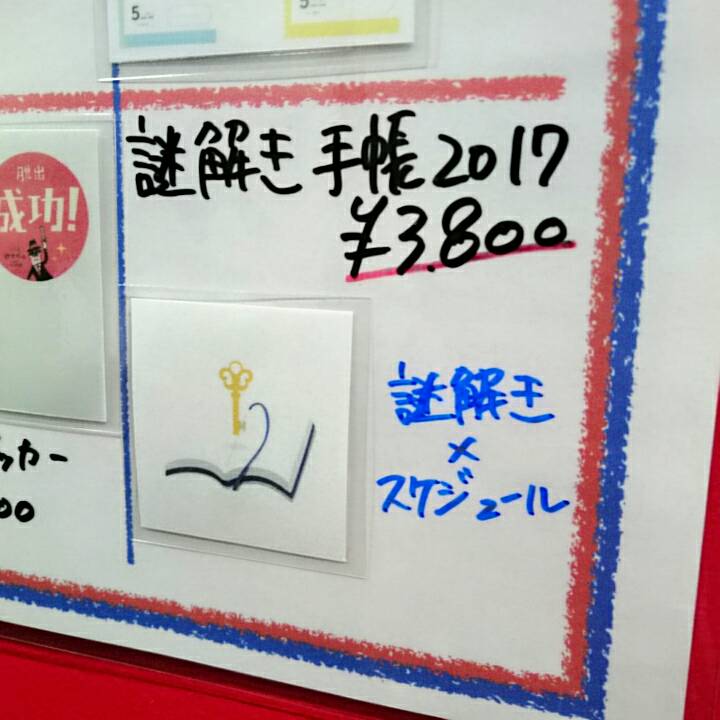 5
5
謎解き手帳2017
¥3.800
脱出
成功!
謎解き
×
スケジュール
ッカー
00